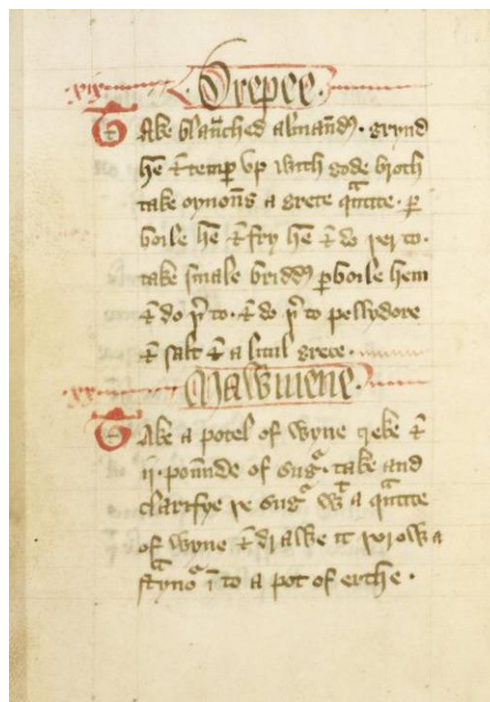 .xix. Drepee.
Take blanched almand. grynd
hē & temp vp with gode broth
take oynoñs a grete qᵃntite. p
boile hē & fry hē & do þerto.
take smale bridd pboile hem
& do þto. & do þto pellydore
& salt & a litul grece.
.xx. Mawmene.
Take a potel of wyne greke &
ij. poūnde of sugʳ. take and
clarifye þe sugʳ wᵗ a qᵃntite
of wyne & drawe it þorow a
stynoʳ ī to a pot of erthe.